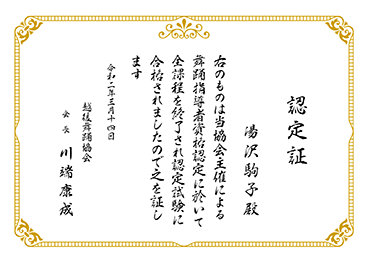 認定証
湯沢駒子殿
右のものは当協会主催による
舞踊指導者資格認定に於いて
全課程を終了され認定試験に
合格されましたので之を証し
ます
令和二年三月十四日
越後舞踊協会
会長 川端康成